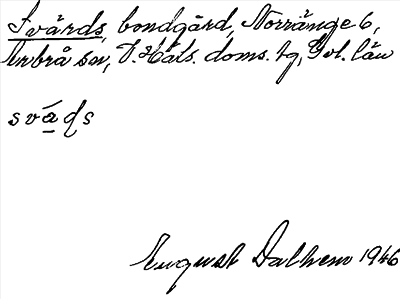 Svärds, bondgård, Norränge 6,
Enbrå sn, N. Häls. doms. tg, Gvl. län
svá̱ḍs
August Dalhem 1946